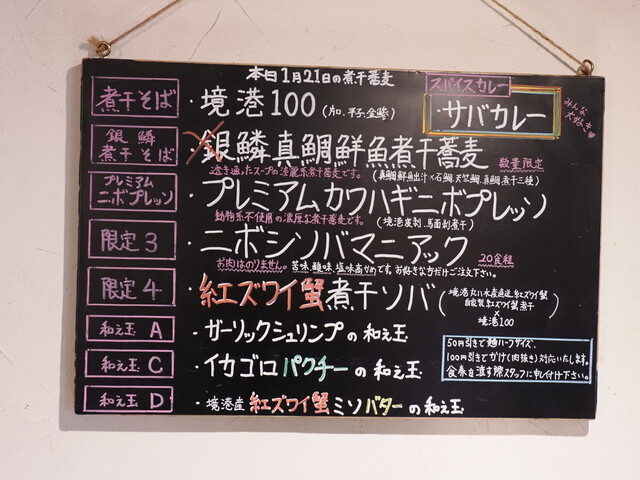 本日1月21日の煮干蕎麦
煮干そば
・境港100(片口、平子、金鯵)
スパイスカレー
・サバカレー
みんな大好き
銀鱗煮干そば
・銀鱗真鯛鮮魚煮干蕎麦 数量限定
透き通ったスープの淡麗系煮干蕎麦です。
(真鯛鮮魚出汁×石鯛、天然鯛、真鯛、煮干三種)
プレミアムニボプレッソ
・プレミアムカワハギニボプレッソ
動物系不使用の濃厚な煮干蕎麦です。
(境港皮剥、馬面剥煮干)
限定3
・ニボシソバマニアック 20食程
お肉はのりません。苦味、酸味、塩味高めです。お好きな方だけご注文下さい。
限定4
・紅ズワイ蟹煮干ソバ
境港
水産直送、紅ズワイ蟹
自家製紅ズワイ蟹煮干
×
境港100
和え玉 A
・ガーリックシュリンプの和え玉
和え玉 C
・イカゴロパクチーの和え玉
和え玉 D
・境港産紅ズワイ蟹ミソバターの和え玉
50円引きで麺ハーフサイズ、
100円引きでかけ(肉抜き)対応いたします。
食券を渡す際スタッフに申し付け下さい。